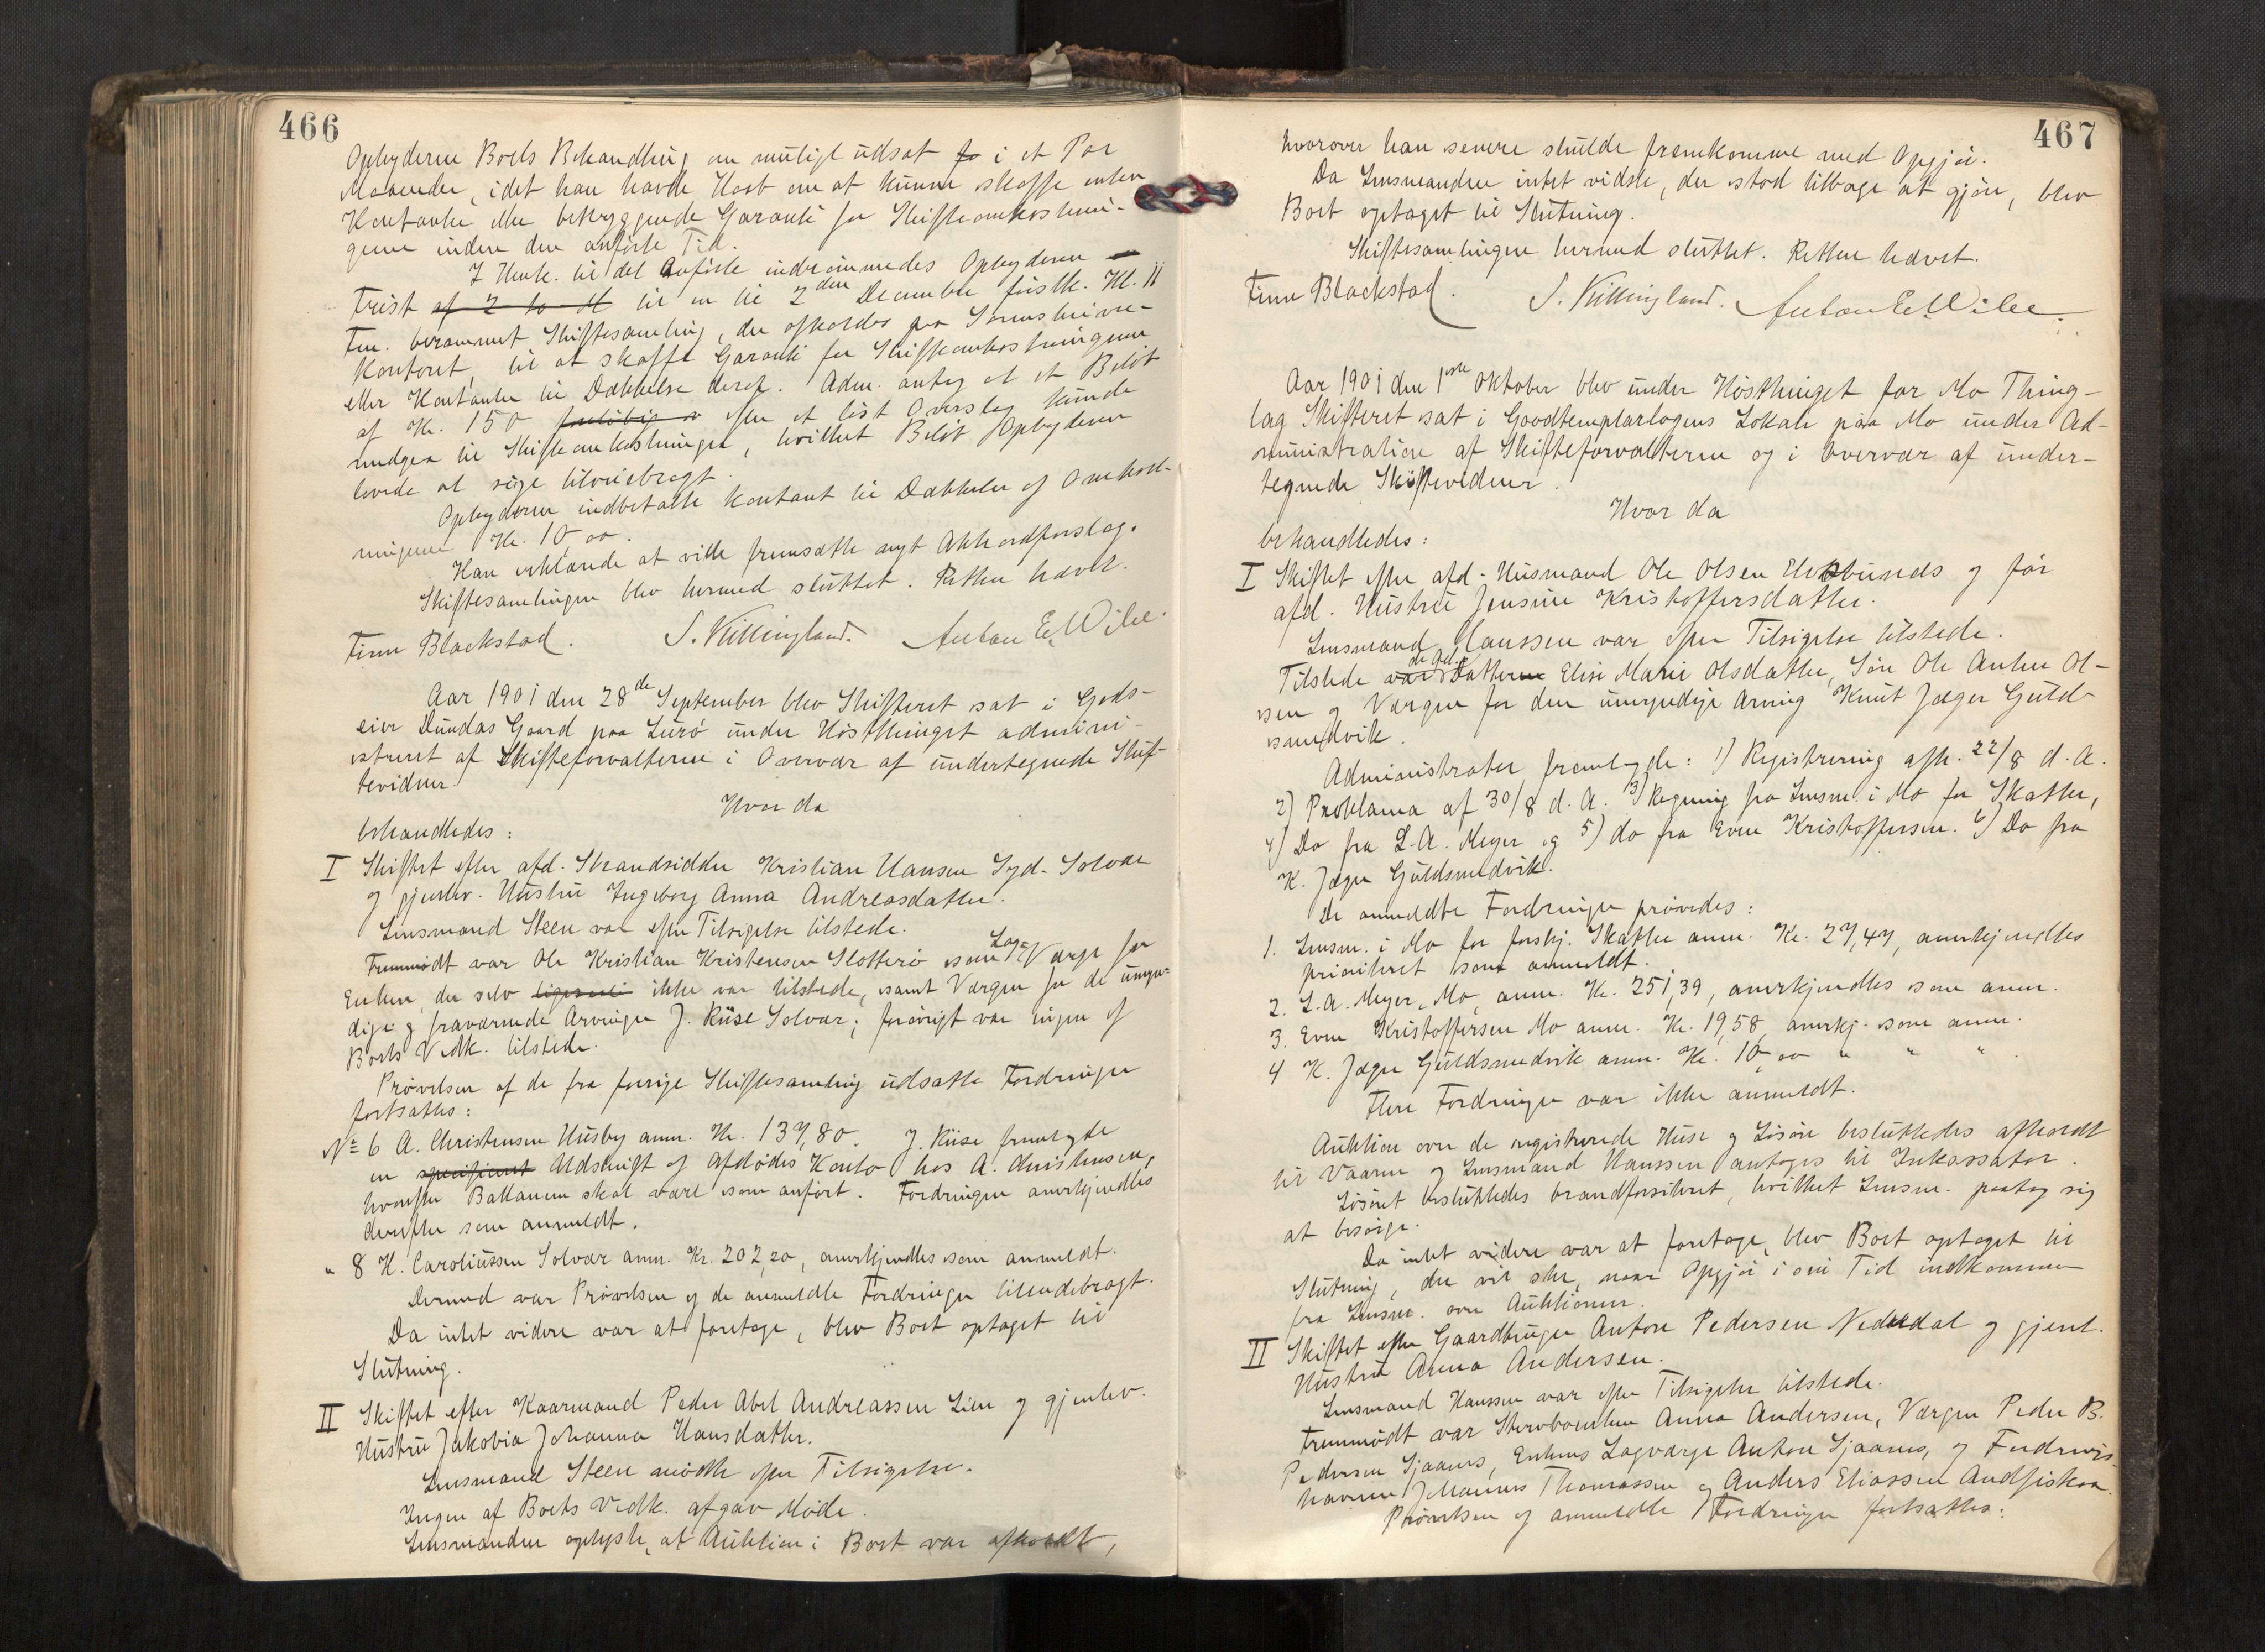 466
Opbyderne Boets Behandling om muligt udsat fo i et Par
Maaneder, idet han havde Haab om at kunne skaffe enten
Kontanter eller betryggende Garanti for Skifteomkostnin-
gerne inden den anförte Tid.
I Henh. til det Anförte indrömmedes Opbyderen
Frist af 2 til en til 2den December förstk. Kl. 11
Fm. berammet Skiftesamling, der afholdes paa Sorenskriver-
kontoret, til at skaffe Garanti for Skifteomkostningerne
eller Kontanter til Dækkelse deraf. Adm. antog at et Belöb
af Kr. 150 foreløbig efter et löst Overslag kunde
medgaa til Skifteomkostninger, hvilket Belöb Opbyderen
lovede at söge tilveiebragt.
Opbyderen indbetalte kontant til Dækkelse af Omkost-
ningerne Kr. 10,00.
Han erklærede at ville fremsætte nyt Akkordforslag.
Skiftesamlingen blev hermed sluttet. Retten hævet.
Finn Blackstad. S. Killingland. Anton E. Wibe.
Aar 1901 den 28de September blev Skifteret sat i Gods-
eier Dundas Gaard paa Lurö under Hösttinget admini-
streret af Skifteforvalteren i Overvær af undertegnede Skif-
tevidner
Hvor da
behandledes:
I Skiftet efter afd. Strandsidder Kristian Hansen Syd-Solvær
og gjenlev. Hustru Ingeborg Anna Andreasdatter.
Lensmand Steen var efter Tilsigelse tilstede.
Fremmödt var Ole Kristian Kristensen Slotterö som Lag-Værge for
Enken, der selv ligesaa ikke var tilstede, samt Værgen for de umyn-
dige og fraværende Arvinger J. Riise Solvær; forövrigt var ingen af
Boets Vedk. tilstede.
Prövelsen af de fra forrige Skiftesamling udsatte Fordringer
fortsattes:
No 6 A. Christensen Husby anm. Kr. 137,80. J. Riise fremlagde
en specificeret Udskrift af Afdödes Konto hos A. Christensen,
hvorefter Ballancen skal være som anfört. Fordringen anerkjendtes
derefter som anmeldt.
" 8 H. Caroliussen Solvær anm. Kr. 202,20, anerkjendtes som anmeldt.
Dermed var Prövelsen af de anmeldte Fordringer tilendebragt.
Da intet videre var at foretage, blev Boet optaget til
Slutning.
II Skiftet efter Kaarmand Peder Abel Andreassen Lien og gjenlev.
Hustru Jakobia Johanna Hansdatter.
Lensmand Steen mödte efter Tilsigelse.
Ingen af Boets Vedk. afgav Möde.
Lensmanden oplyste, at Auktion i Boet var afholdt,
467
hvorover han senere skulde fremkomme med Opgjör.
Da Lensmanden intet vidste, der stod tilbage at gjöre, blev
Boet optaget til Slutning.
Skiftesamlingen hermed sluttet. Retten hævet.
Finn Blackstad. S. Killingland. Anton E. Wibe.
Aar 1901 den 1ste Oktober blev under Hösttinget for Mo Thing-
lag Skifteret sat i Goodtemplarlogens Lokale paa Mo under Ad-
ministration af Skifteforvalteren og i Overvær af under-
tegnede Skiftevidner.
Hvor da
behandledes:
I Skiftet efter afd. Husmand Ole Olsen og för
afd. Hustru Jensine Kristoffersdatter.
Lensmand Hanssen var efter Tilsigelse tilstede.
Tilstede var de Afd. Datter Elise Marie Olsdatter, Sön Ole Anton Ol-
sen og Værgen for den umyndige Arving Knut Jæger Guld-
smedvik.
Administrator fremlagde: 1) Registrering afh. 22/8 d. A.
2) Proklama af 30/8 d. A. 3) Regning fra Lensm. i Mo for Skatter,
4) Do fra L. A. Meyer og 5) do fra Even Kristoffersen. 6) Do fra
K. Jæger Guldsmedvik.
De anmeldte Fordringer prövedes:
1. Lensm. i Mo for forskj. Skatter anm. Kr. 27,47, anerkjendtes
prioriteret som anmeldt.
2. L. A. Meyer, Mo, anm. Kr. 251,39, anerkjendtes som anm.
3. Even Kristoffersen Mo anm. Kr. 19,58, anerkj. som anm.
4 K. Jæger Guldsmedvik anm. Kr. 10,00 " " "
Flere Fordringer var ikke anmeldt.
Auktion over de registrerede Huse og Lösöre besluttedes afholdt
til Vaaren og Lensmand Hanssen antoges til Inkassator.
Lösöret besluttedes brandforsikret, hvilket Lensm. paatog sig
at besörge.
Da intet videre var at foretage, blev Boet optaget til
Slutning, der vil ske, naar Opgjör i sin Tid indkommer
fra Lensm. over Auktionen.
II Skiftet efter Gaardbruger Anton Pedersen Nederdal og gjenl.
Hustru Anna Andersen.
Lensmand Hanssen var efter Tilsigelse tilstede.
Fremmödt var Stervboenken Anna Andersen, Værgen Peder B.
Pedersen Sjaanes, Enkens Lagværge Anton Sjaanes, og Fordrings-
haverne Johannes Thomassen og Anders Eliassen Andfiskaa.
Prövelsen af anmeldte Fordringer fortsattes: